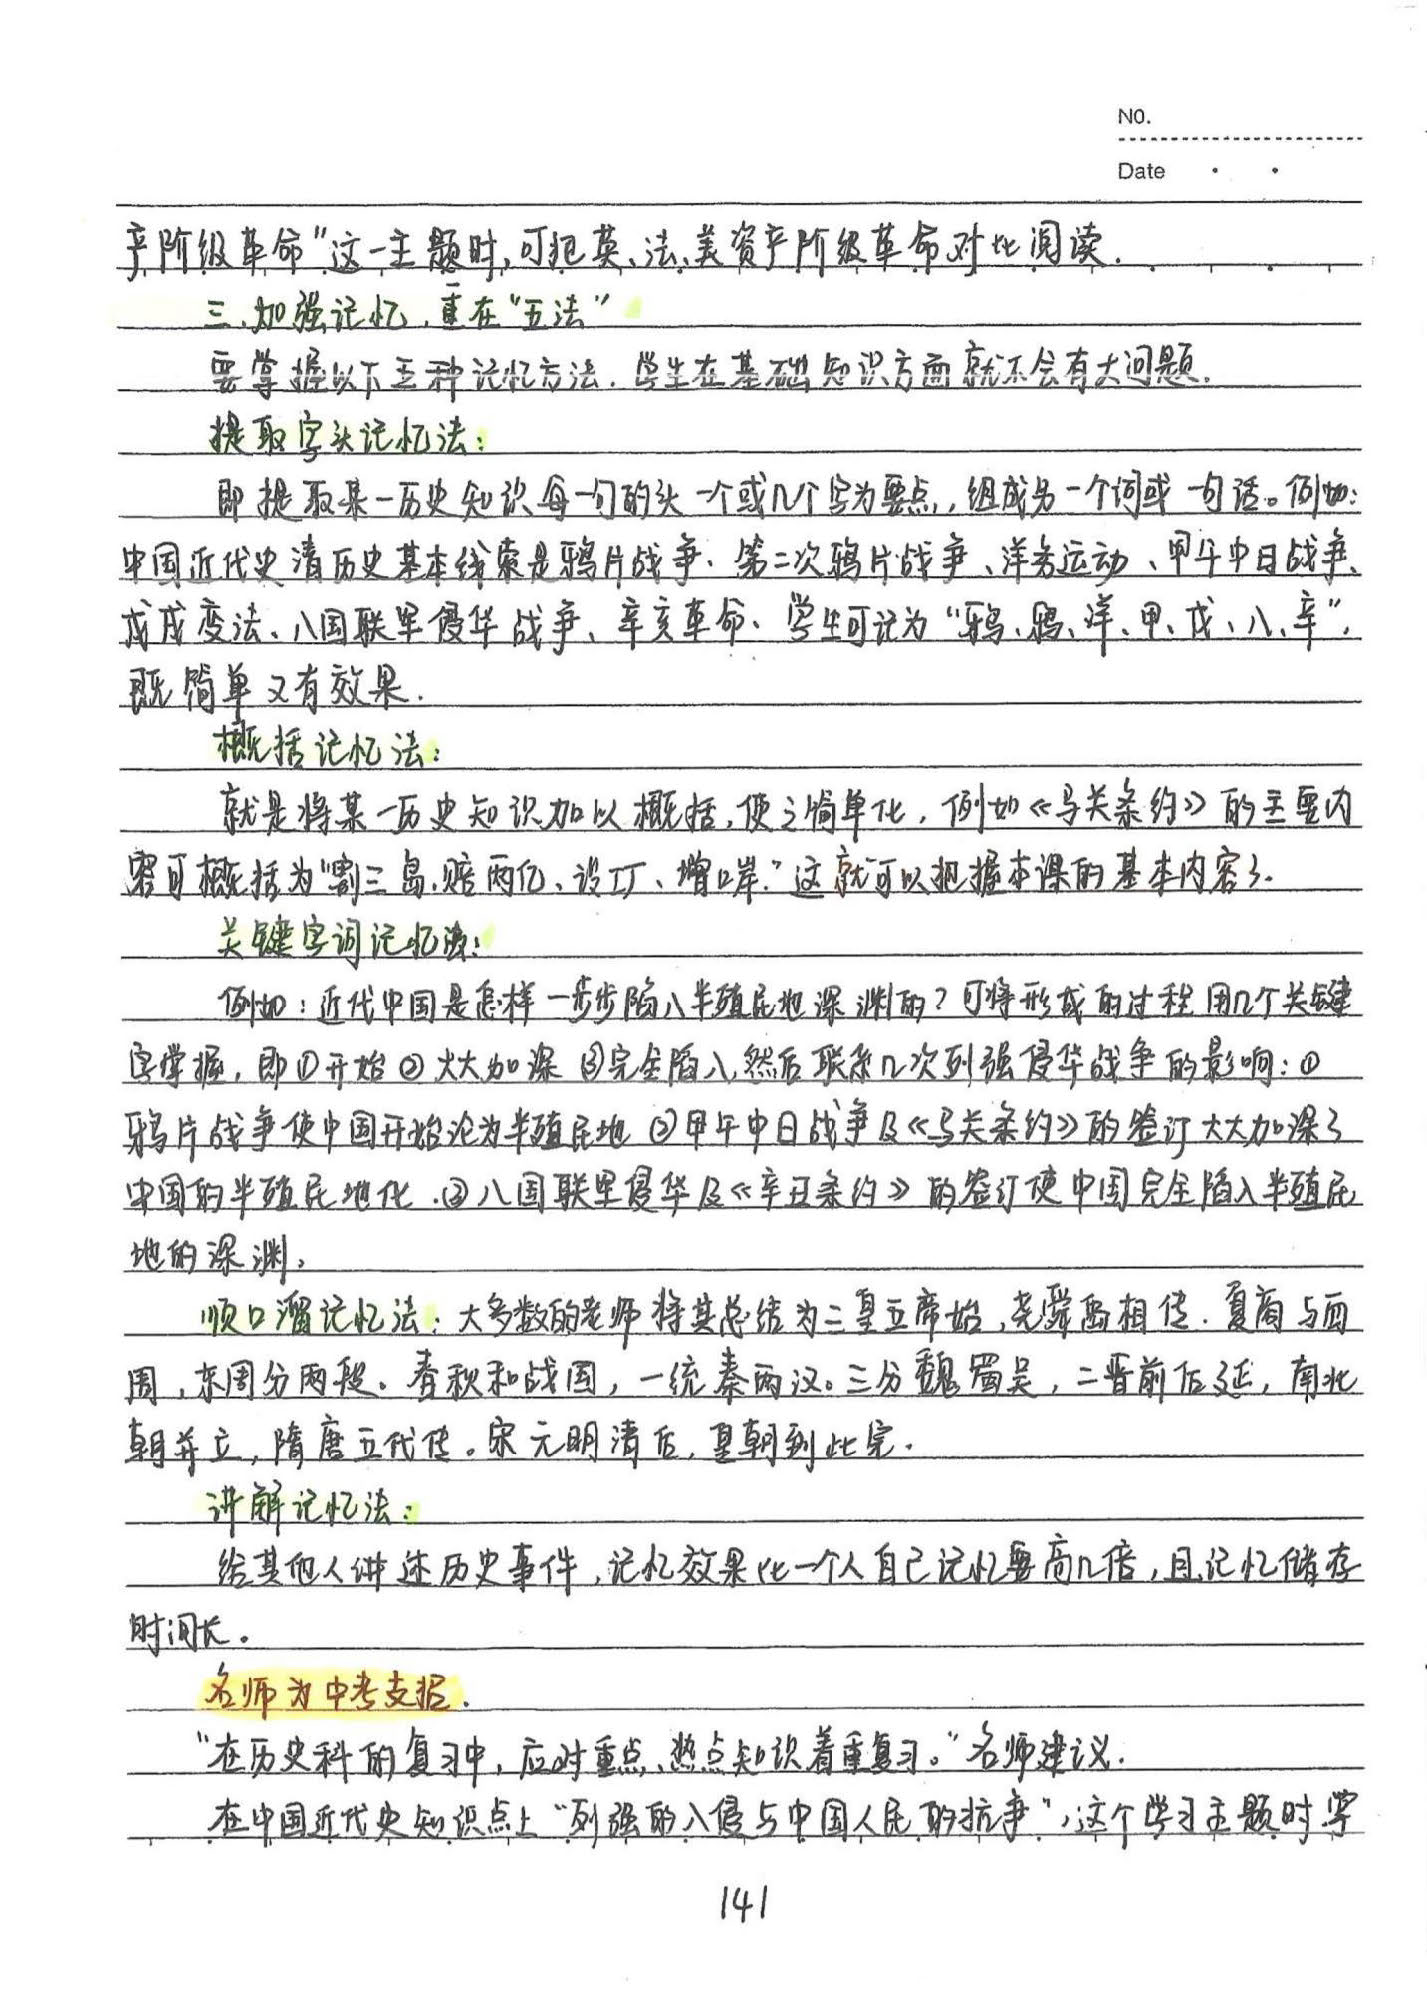 NO.
Date
产阶级革命"这一主题时,可把英、法、美资产阶级革命对比阅读.
三.加强记忆,重在"五法"
要掌握以下五种记忆方法.学生在基础知识方面就不会有大问题.
提取字头记忆法:
即提取某一历史知识每一句的头一个或几个字为要点,组成另一个词或一句话。例如:
中国近代史清历史基本线索是鸦片战争、第二次鸦片战争、洋务运动、甲午中日战争、
戊戌变法、八国联军侵华战争、辛亥革命、学生可记为"鸦、鸦、洋、甲、戊、八、辛",
既简单又有效果.
概括记忆法:
就是将某一历史知识加以概括,使之简单化,例如《马关条约》的主要内
容可概括为"割三岛.赔两亿、设工厂、增口岸."这就可以把握本课的基本内容了.
关键字词记忆法:
例如:近代中国是怎样一步步陷入半殖民地深渊的?可将形成的过程用几个关键
字掌握,即①开始②大大加深③完全陷入,然后联系几次列强侵华战争的影响:①
鸦片战争使中国开始沦为半殖民地②甲午中日战争及《马关条约》的签订大大加深了
中国的半殖民地化.③八国联军侵华及《辛丑条约》的签订使中国完全陷入半殖民
地的深渊。
顺口溜记忆法:大多数的老师将其总结为三皇五帝始,尧舜禹相传.夏商与西
周,东周分两段。春秋和战国,一统秦两汉。三分魏蜀吴,二晋前后延,南北
朝并立,隋唐五代传。宋元明清后,皇朝到此完.
讲解记忆法:
给其他人讲述历史事件,记忆效果比一个人自己记忆要高几倍,且记忆储存
时间长。
名师为中考支招.
"在历史科的复习中,应对重点、热点知识着重复习。"名师建议.
在中国近代史知识点上"列强的入侵与中国人民的抗争",这个学习主题时学
141